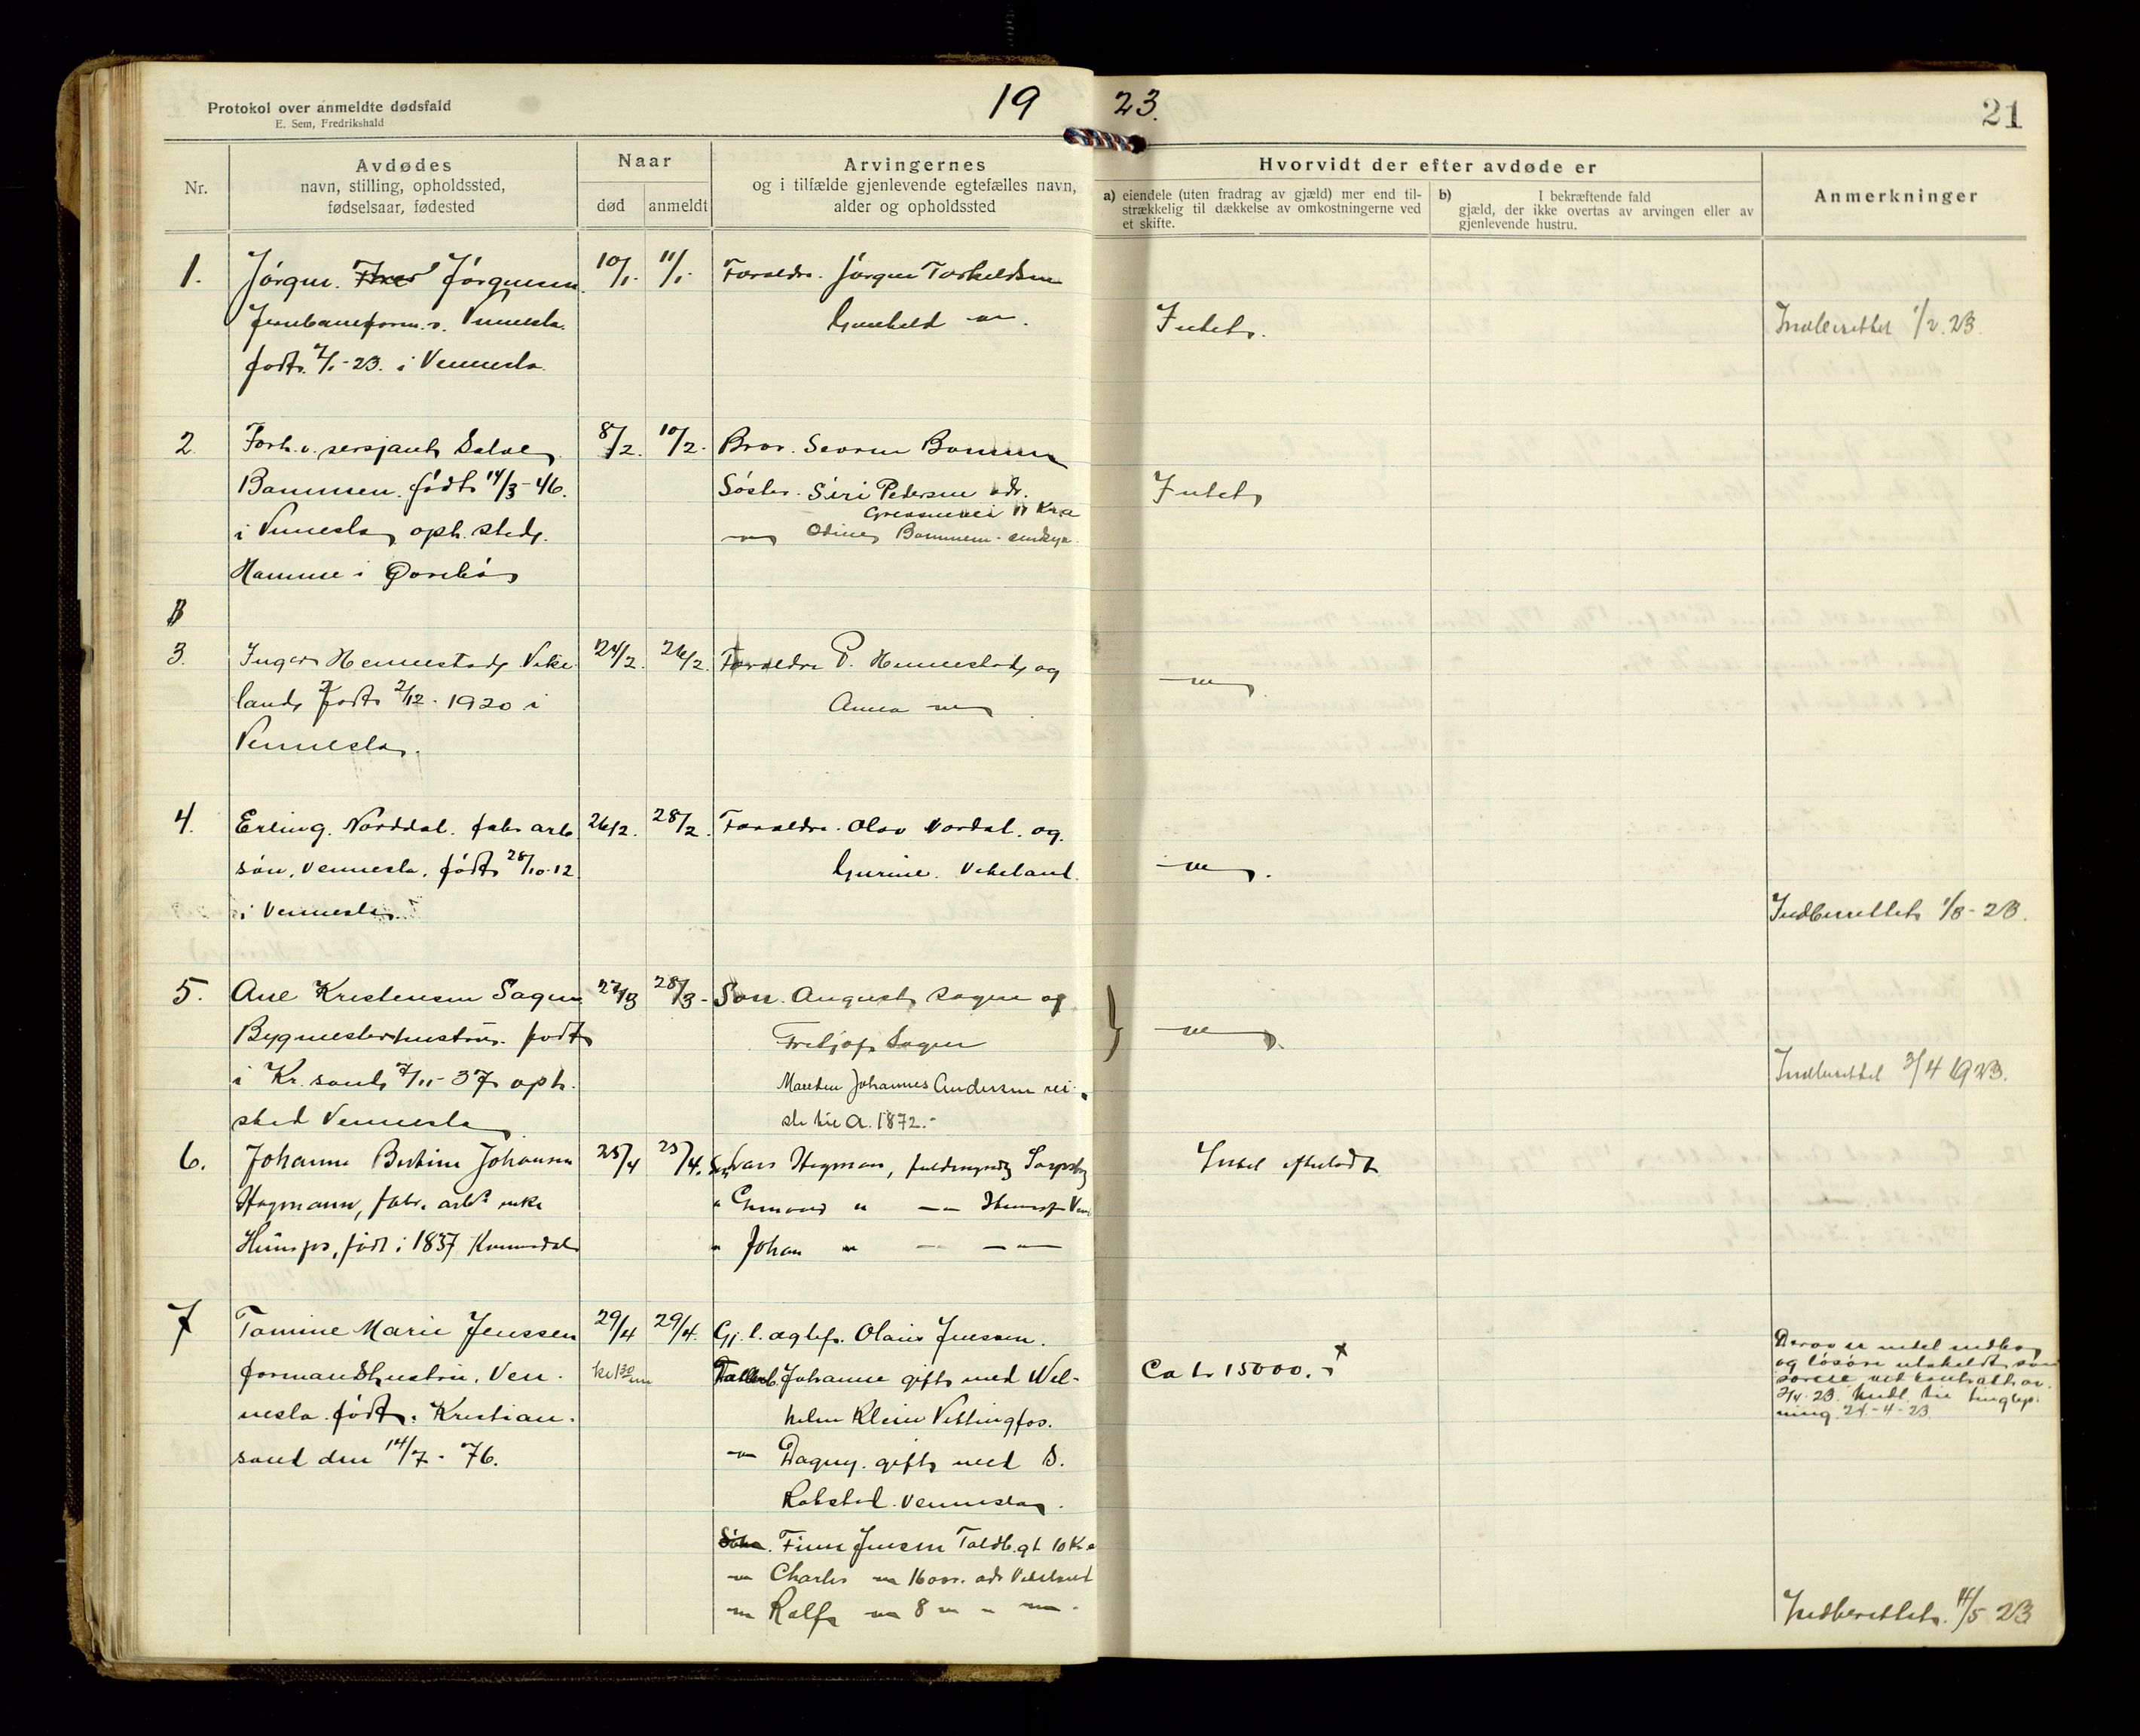 Protokol over anmeldte dødsfald
E. Sem, Fredrikshald
19 23.
21
Nr.
Avdødes
navn, stilling, opholdssted,
fødselsaar, fødested
Naar
død
anmeldt
Arvingernes
og i tilfælde gjenlevende egtefælles navn,
alder og opholdssted
Hvorvidt der efter avdøde er
a) eiendele (uten fradrag av gjæld) mer end til-
strækkelig til dækkelse av omkostningerne ved
et skifte.
b) I bekræftende fald
gjæld, der ikke overtas av arvingen eller av
gjenlevende hustru.
Anmerkninger
1.
Jörgen Jörgensen
Vennesla.
født 7/1-23. i Vennesla
10/1. 11/1.
Foraldre. Jörgen Torkeldsen
Gunhild -"-.
Intet.
Indberettet 1/2. 23.
2.
Forh.v. sersjant Salve
Bommen. født 14/3-46.
i Vennesla oph. sted.
8/2. 10/2.
Bror. Bommen
Söster. Siri Pedersen adr.
-"- Odine Bommen
Intet
3.
Inger Hennestad Vike
land født 2/12. 1920 i
Vennesla.
24/2. 26/2.
Foraldre P. Hennestad og
Anna -"-
-"-
4.
Erling. Norddal. fabr arb
sön. Vennesla. født 28/10-12
i Vennesla.
26/2. 28/2.
Foraldre. Olav Nordal. og
Gurine. Vikeland.
-"-.
Indberettet 1/3-23.
5.
Ane Kristensen Sagen
Bygmesterhustru. født
i Kr. sand 7/11-37 oph.
sted Vennesla
27/3 28/3-
Sön. August Sagen og
Fritjof Sagen
Manden Johannes Andersen rei-
ste til A. 1872.-
-"-
Indberettet 3/4 1923.
6.
Johanne Bertine Johansen
Hagmann, fabr. arbs enke
Hunsfos, født i 1837
25/4 25/4.
Lars Hagman, fuldmyndig Sarpsborg
" "
" Johan "
Intet efterladt
7
Tomine Marie Jenssen
formandshustru. Ven-
nesla født. Kristian-
sand den 14/7-76.
29/4 29/4.
Gj. l. ægtef. Olaus Jenssen.
Johanne gift med Wil-
helm Klein Vittingfos.
-"- Dagny. gift med S.
Vennesla.
Finn Jensen Toldb.gt 10 Kr.a
-"- Charles -"- 16 aar. adr Vikeland
-"- Ralf -"- 8 -"- " -"-.
Ca kr 15000.-x
ning 24-4-23
Indberettet. 11/5 23